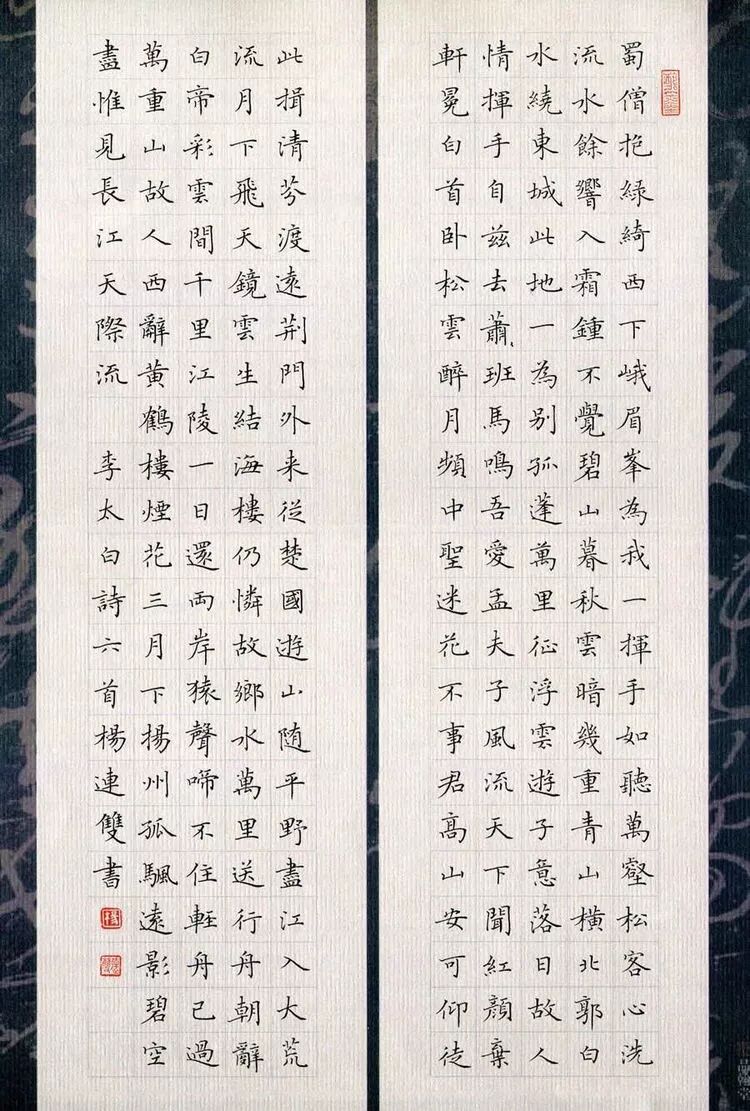 蜀僧抱綠綺西下峨眉峯為我一揮手如聽萬壑松客心洗
流水餘響入霜鍾不覺碧山暮秋雲暗幾重青山橫北郭白
水繞東城此地一為别孤蓬萬里征浮雲遊子意落日故人
情揮手自兹去蕭〻班馬鳴吾愛孟夫子風流天下聞紅顏棄
軒冕白首卧松雲醉月頻中聖迷花不事君高山安可仰徒
此揖清芬渡遠荆門外来從楚國遊山随平野盡江入大荒
流月下飛天鏡雲生結海樓仍憐故鄉水萬里送行舟朝辭
白帝彩雲間千里江陵一日還兩岸猿聲啼不住輕舟已過
萬重山故人西辭黄鶴樓煙花三月下揚州孤颿遠影碧空
盡惟見長江天際流 李太白詩六首楊連雙書